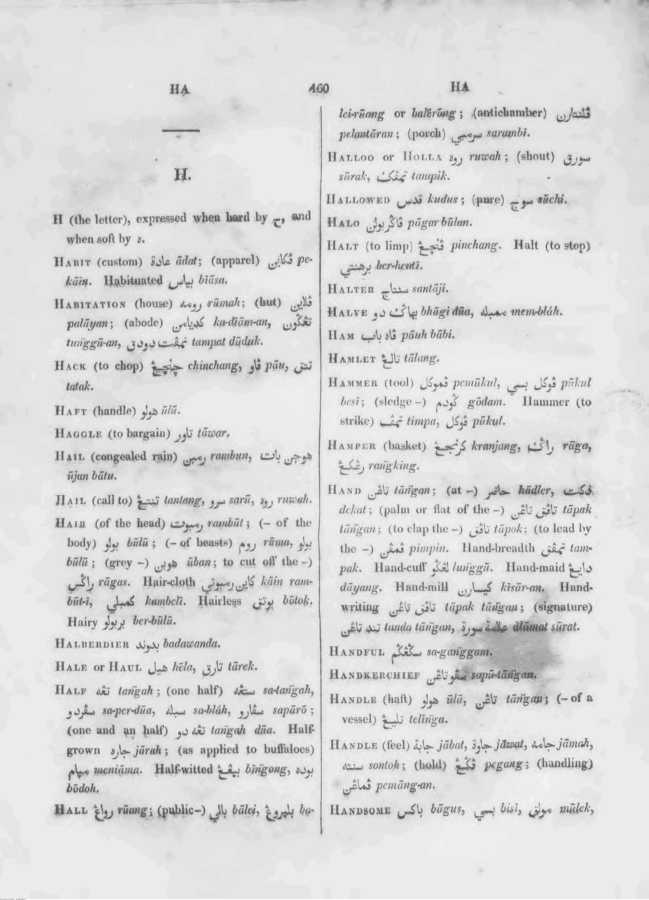 HA 460 HA
H.
H (the letter), expressed when hard by ح, and
when soft by ه.
HABIT (custom) عادة ādat; (apparel) ڤکاين pe-
kāin. Habituated بياس biāsa.
HABITATION (house) رومه rūmah; (hut) ڤلاين
palāyan; (abode) کديامن ka-diām-an, تڠگون
tunggū-an, تمڤت دودق tampat dūduk.
HACK (to chop) چنچڠ chinchang, ڤاو pāu, تتق
tatak.
HAFT (handle) هولو ūlū.
HAGGLE (to bargain) تاور tāwar.
HAIL (congealed rain) رمبن rambun, هوجن بات
ūjan bātu.
HAIL (call to) تنتڠ tantang, سرو sarū, روه ruwah.
HAIR (of the head) رمبوت rambūt; (– of the
body) بولو būlū; (– of beasts) روم rūma, بولو
būlū; (grey –) هوبن ūban; to cut off the –)
راگس rāgas. Hair-cloth کاين رمبوتي kāin ram-
būt-ī, کمبلي kambelī. Hairless بوتق būtok.
Hairy بربولو ber-būlū.
HALBERDIER بدوند badawanda.
HALE or HAUL هيل hēla, تارق tārek.
HALF تڠه tangah; (one half) ستڠه sa-tangah,
سڤردو sa-per-dūa, سبله sa-blāh, سڤارو sapārō;
(one and an half) تڠه دو tangah dūa. Half-
grown جاره jārah; (as applied to buffaloes)
ميام meniāma. Half-witted بيڠڠ bīngong, بوده
būdoh.
HALL رواڠ rūang; (public–) بالي bālei, بليروڠ ba-
lei-rūang or balērūng; (antichamber) ڤلنتارن
pelantāran; (porch) سرمبي sarambi.
HALLOO or HOLLA روه ruwah; (shout) سورق
sūrak, تمڤيک tampik.
HALLOWED قدس kudus; (pure) سوچ sūchi.
HALO ڤاگربولن pāgar būlan.
HALT (to limp) ڤنچڠ pinchang. Halt (to stop)
برهنتي ber-hentī.
HALTER سنتاج santāji.
HALVE بهاگ دو bhāgi dūa, ممبله mem-blāh.
HAM ڤاه باب pāuh bābi.
HAMLET تالڠ tālang.
HAMMER (tool) ڤموکل pemūkul, ڤوکل بسي pūkul
besi; (sledge –) گودم gōdam. Hammer (to
strike) تمڤ timpa, ڤوکل pūkul.
HAMPER (basket) کرنجڠ kranjang, راگ rāga,
رڠکڠ rangking.
HAND تاڠن tāngan; (at –) حاضر hādler, دکت
dekat; (palm or flat of the –) تاڤق تاڠن tāpak
tāngan; (to clap the –) تاڤق tāpok; (to lead by
the –) ڤمڤن pimpin. Hand-breadth تمڤق tam-
pak. Hand-cuff لڠگو lunggū. Hand-maid دايڠ
dāyang. Hand-mill کيسارن kīsār-an. Hand-
writing تاڤق تاڠن tāpak tāngan; (signature)
تند تاڠن tanda tāngan, علامة سورة ālāmat sūrat.
HANDFUL سگڠگم sa-ganggam.
HANDKERCHIEF سڤوتاڠن sapū-tāngan.
HANDLE (haft) هولو ūlū, تاڠن tāngan; (– of a
vessel) تليڠ telīnga.
HANDLE (feel) جابة jābat, جاوة jāwat, جامه jāmah,
سنته sontoh; (hold) ڤگڠ pegang; (handling)
ڤماڠن pemāng-an.
HANDSOME باگس bāgus, بسي bisī, مولق mūlek,